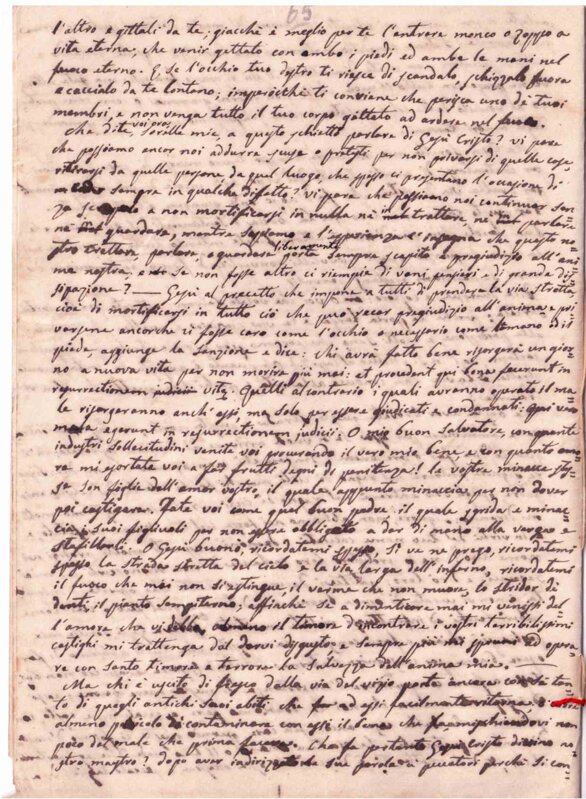 65
l'altro e gittali da te; giacchè è meglio per te l'entrare monco o zoppo a
vita eterna, che venir gettato con ambo i piedi ed ambe le mani nel
fuoco eterno. E, se l'occhio tuo destro ti riesce di scandalo, schizzalo fuora
e caccialo da te lontano; imperocchè ti conviene che perisca uno de' tuoi
membri, e non venga tutto il tuo corpo gettato ad ardere nel fuoco.
Che dite, voi pros Sorelle mie, a questo schietto parlare di Gesù Cristo? vi pare
che possiamo ancor noi addurre scuse o pretesti per non privarsi di quelle cose,
ritirarsi da quelle persone, da quel luogo, che spesso ci presentano l'occasione di
sempre in qualche difetto? vi pare che possiamo noi continuar sen=
za scrupolo a non mortificarsi in nulla nè in trattare nè parlare
nè guardare, mentre sappiamo e l'esperienza c'insegna che questo no=
stro trattare, parlare, o guardare liberamente porta sempre scapito e pregiudizio all'ani
ma nostra, se non fosse altro ci riempie di vani pensieri e di grande dis
sipazione? — Gesù al precetto che impone a tutti di prendere la via stretta
cioè di mortificarsi in tutto ciò che può recar pregiudizio all'anima e pri
varsene ancorchè ci fosse caro come l'occhio o necessario come la mano ed il
piede, aggiunge la sanzione e dice: chi avrà fatto bene risorgerà un gior=
no a nuova vita per non morire più mai: et procedent qui bona fecerunt in
resurrectionem vitæ. Quelli al contrario i quali avranno operato il ma
le risorgeranno anch'essi ma solo per essere giudicati e condannati. Qui vero
mala egerunt in resurrectionem judicii. O mio buon Salvatore, con quante
industri sollecitudini venite voi procurando il vero mio bene, e con quanto amo
re mi esortate voi a far frutti degni di penitenza! le vostre minacce stes
se son figlie dell'amor vostro, il quale appunto minaccia, per non dover
poi castigare. Fate voi come quel buon padre il quale grida e minac
cia i suoi figliuoli per non essere obbligato a dar di mano alla verga e
staffilarli. O Gesù buono, ricordatemi spesso, sì ve ne prego, ricordatemi
spesso la strada stretta del cielo e la via larga dell'inferno, ricordatemi
il fuoco che mai non si estingue, il verme che non muore, lo stridor de'
denti, il pianto sempiterno; affinchè se a dimenticare mai mi venissi del
l'amore che vi debbo, almeno il timore d'incontrare i vostri terribilissimi
castighi mi trattenga dal darvi disgusto e sempre più mi sproni ad opera
re con santo timore e terrore la salvezza dell'anima mia.
Ma chi è uscito di fresco dalla via del vizio porta ancora con se tan
to di quegli antichi suoi abiti che ad essi facilmente ritorna o
almeno pericolo di contaminare con essi il bene che fa, mischiandovi non
poco del male che prima faceva. Che fa pertanto Gesù Cristo divino no
stro maestro? dopo aver indirizzate le sue parole ai peccatori perchè si con